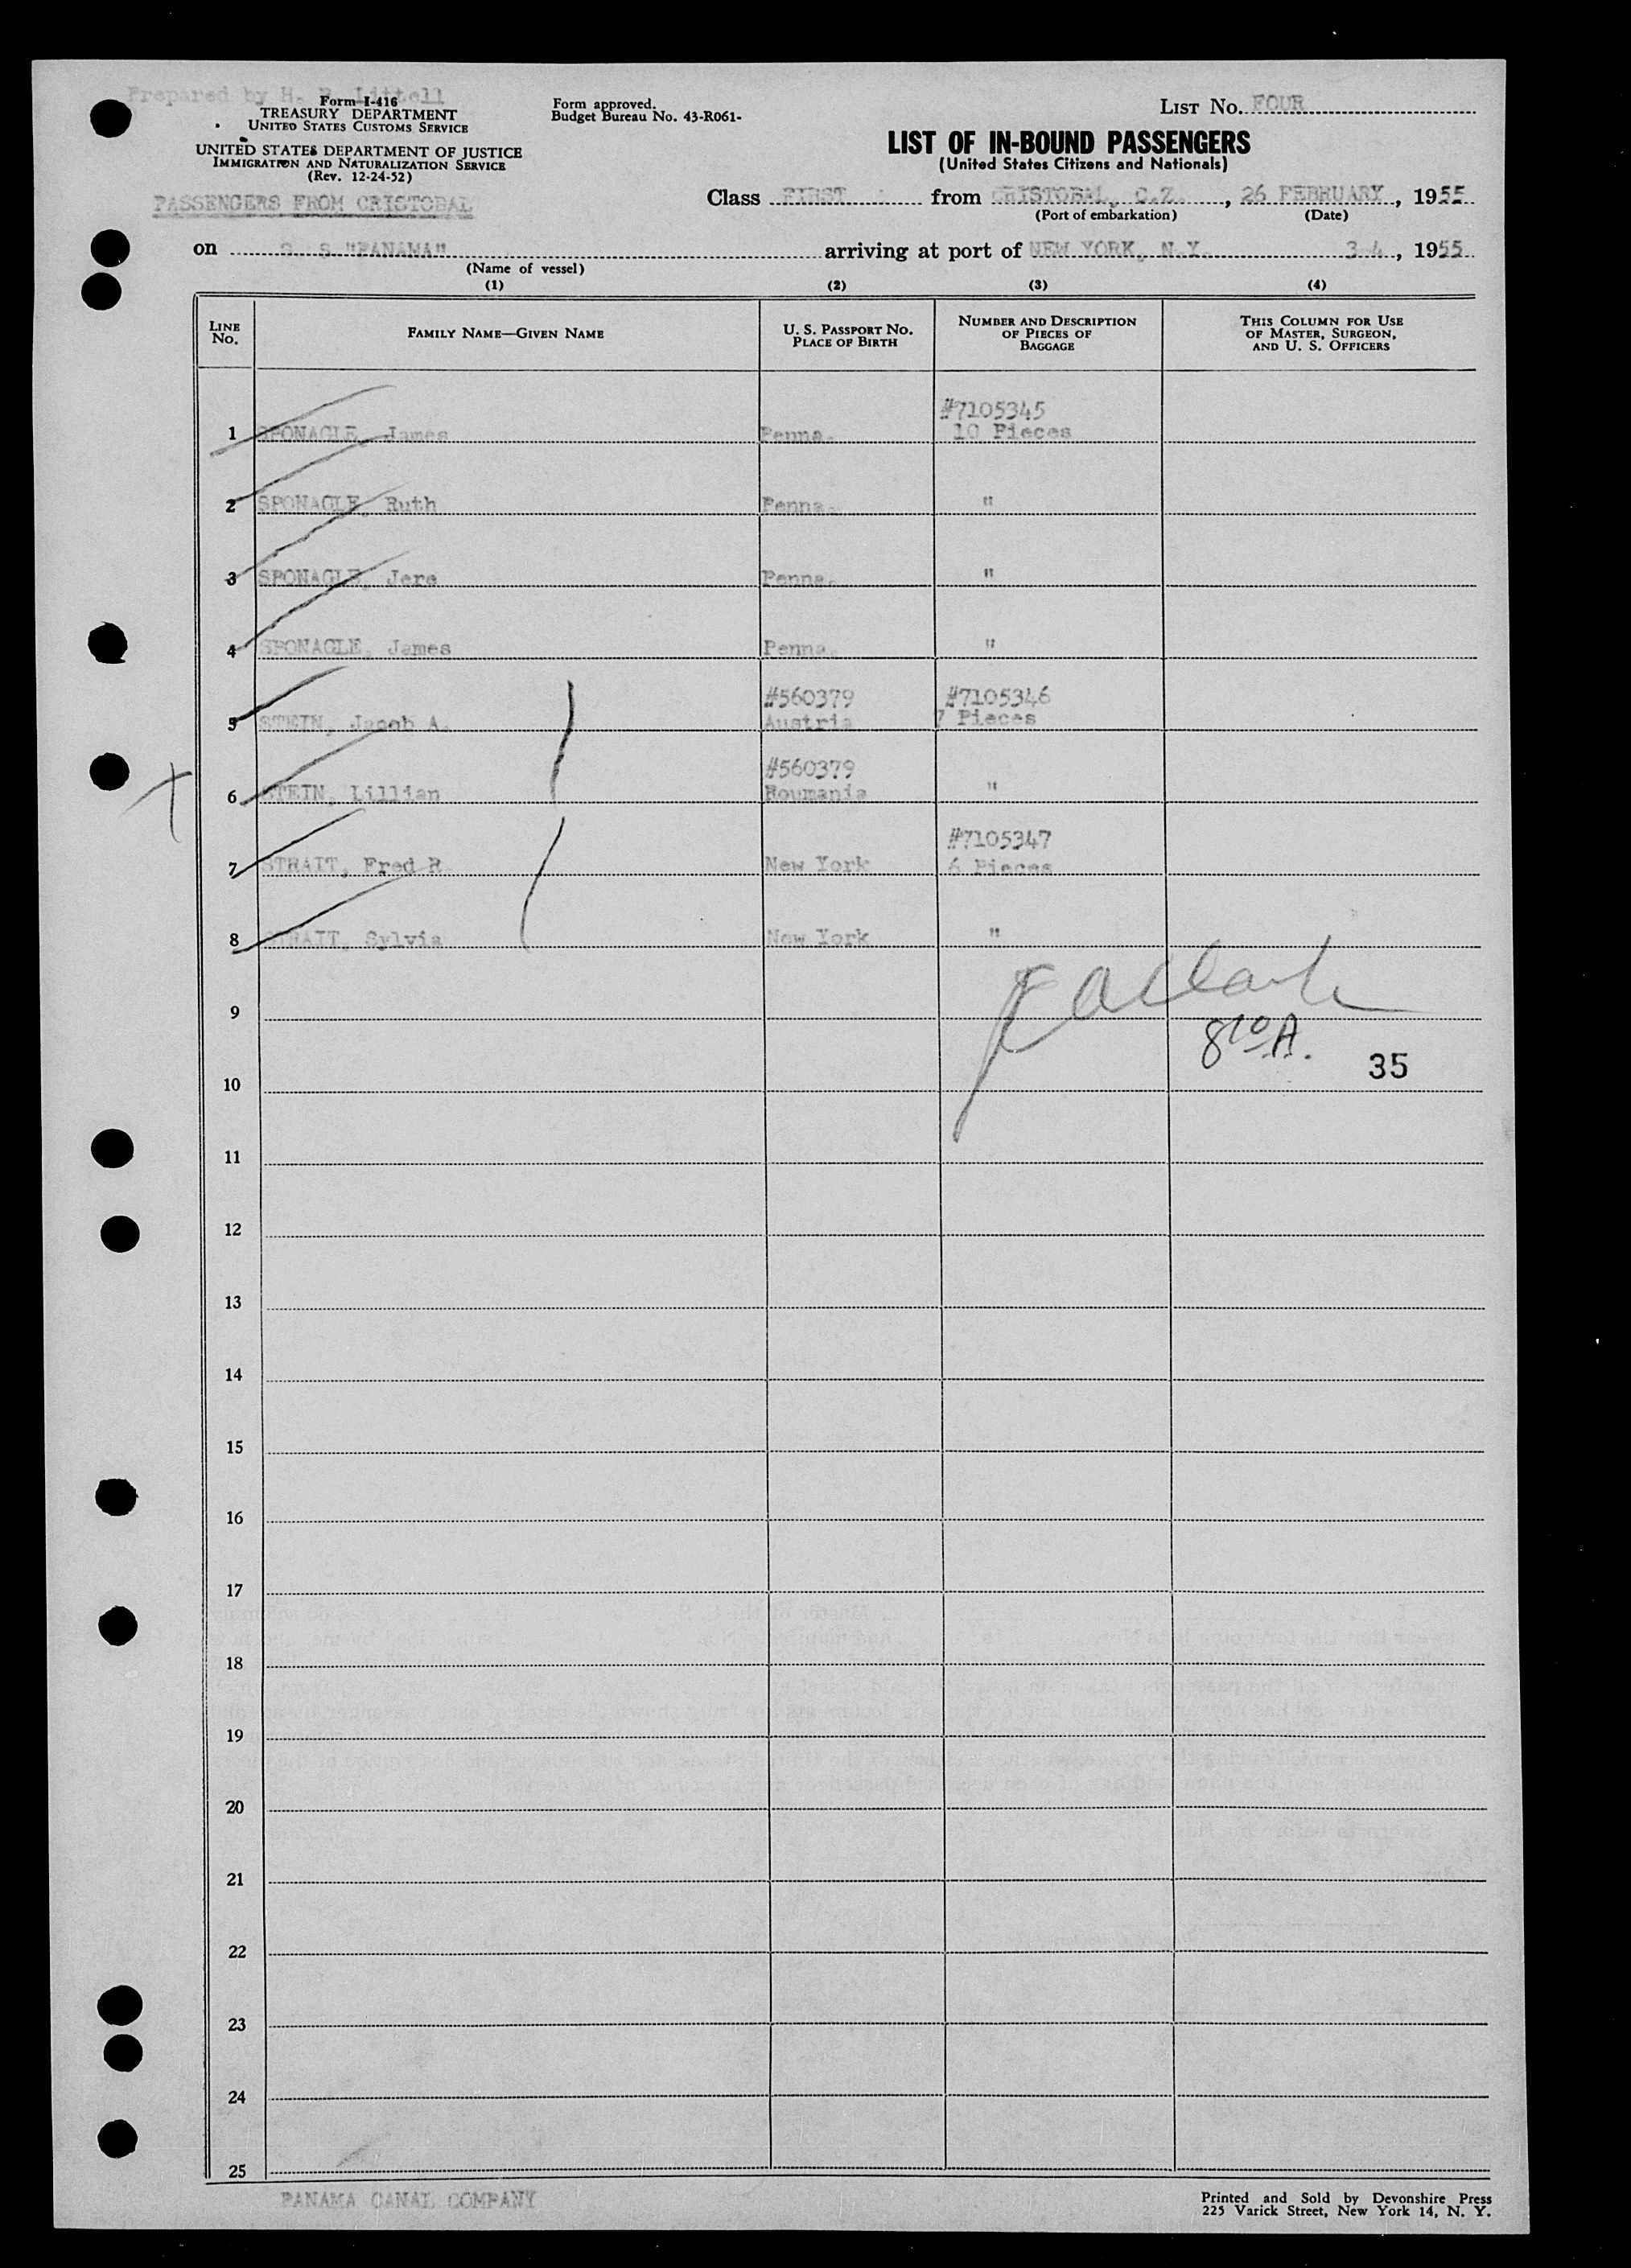 Prepared by H. B. Littell
Form I-416
TREASURY DEPARTMENT
UNITED STATES CUSTOMS SERVICE
UNITED STATES DEPARTMENT OF JUSTICE
IMMIGRATION AND NATURALIZATION SERVICE
(Rev. 12-24-52)
PASSENGERS FROM CRISTOBAL
Form approved.
Budget Bureau No. 43-R061-
LIST No. FOUR
LIST OF IN-BOUND PASSENGERS
(United States Citizens and Nationals)
Class FIRST from CRISTOBAL, C.Z., 26 FEBRUARY, 1955
(Port of embarkation) (Date)
on S. S. "PANAMA" arriving at port of NEW YORK, N.Y. 3 4, 1955
(Name of vessel)
(1) (2) (3) (4)
LINE No. FAMILY NAME—GIVEN NAME U. S. PASSPORT NO. PLACE OF BIRTH NUMBER AND DESCRIPTION OF PIECES OF BAGGAGE THIS COLUMN FOR USE OF MASTER, SURGEON, AND U. S. OFFICERS
#7105345
1 SPONAGLE, James Penna. 10 Pieces
2 SPONAGLE, Ruth Penna. "
3 SPONAGLE, Jere Penna. "
4 SPONAGLE, James Penna. "
#560379 #7105346
5 STEIN, Jacob A. Austria 7 Pieces
#560379
6 STEIN, Lillian Roumania "
#7105347
7 STRAIT, Fred R. New York 6 Pieces
8 STRAIT, Sylvia New York "
9
810 A. 35
10
11
12
13
14
15
16
17
18
19
20
21
22
23
24
25
PANAMA CANAL COMPANY
Printed and Sold by Devonshire Press
225 Varick Street, New York 14, N. Y.